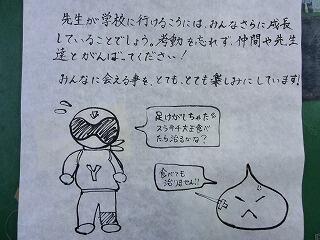 先生が学校に行けるころには、みんなさらに成長
していることでしょう。考動を忘れず、仲間や先生
達とがんばってください!
みんなに会える事を、とても、とても楽しみにしています!
足けがしちゃた
スライチ大王食べ
たら治るかな?
食べても
治りません!!
Y